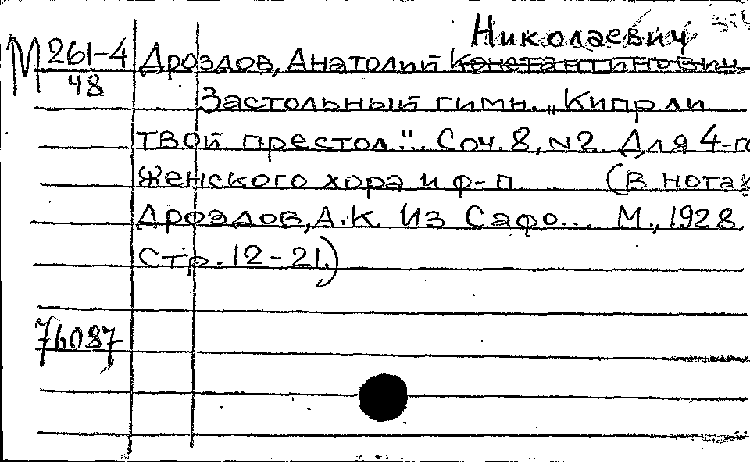 Николаевич
М 261-4 Дроздов, Анатолий Константинович
48
Застольный гимн. „Кипр ли
твой престол". Соч. 8, №2. Для 4-го
женского хора и ф-п. (В нотах
Дроздов, А.К. Из Сафо... М., 1928.
Стр. 12-21.)
76087